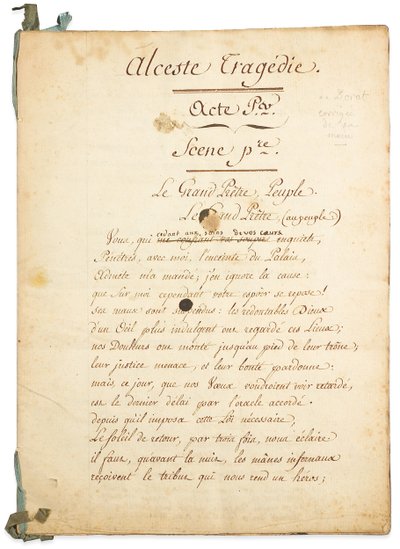 Alceste Tragédie.
Acte Per.
de Dorat
corrigée
de sa
main
Scene pre.
Le Grand Prêtre, Peuple.
Le Grand Prêtre (au peuple)
cedant aux soins de vos cœurs
Vous, qui me enquiete,
Penétrés, avec moi, l'enceinte du Palais,
Admete m'a mandé; j'en ignore la cause:
que sur moi cependant votre espoir se repose!
ses maux sont suspendus: les redoutables Dieux
d'un Œil plus indulgent ont regardé ces Lieux;
nos Douleurs ont monté jusqu'au pied de leur trône;
leur justice menace, et leur bonté pardonne:
mais ce jour, que nos Vœux voudroient voir retardé,
est le dernier délai par l'oracle accordé.
depuis qu'il imposa cette Loi nécessaire,
Le soleil de retour, par trois fois, nous éclaire
il faut, qu'avant la nuit, les mânes infernaux
reçoivent le tribut qui nous rend un héros;